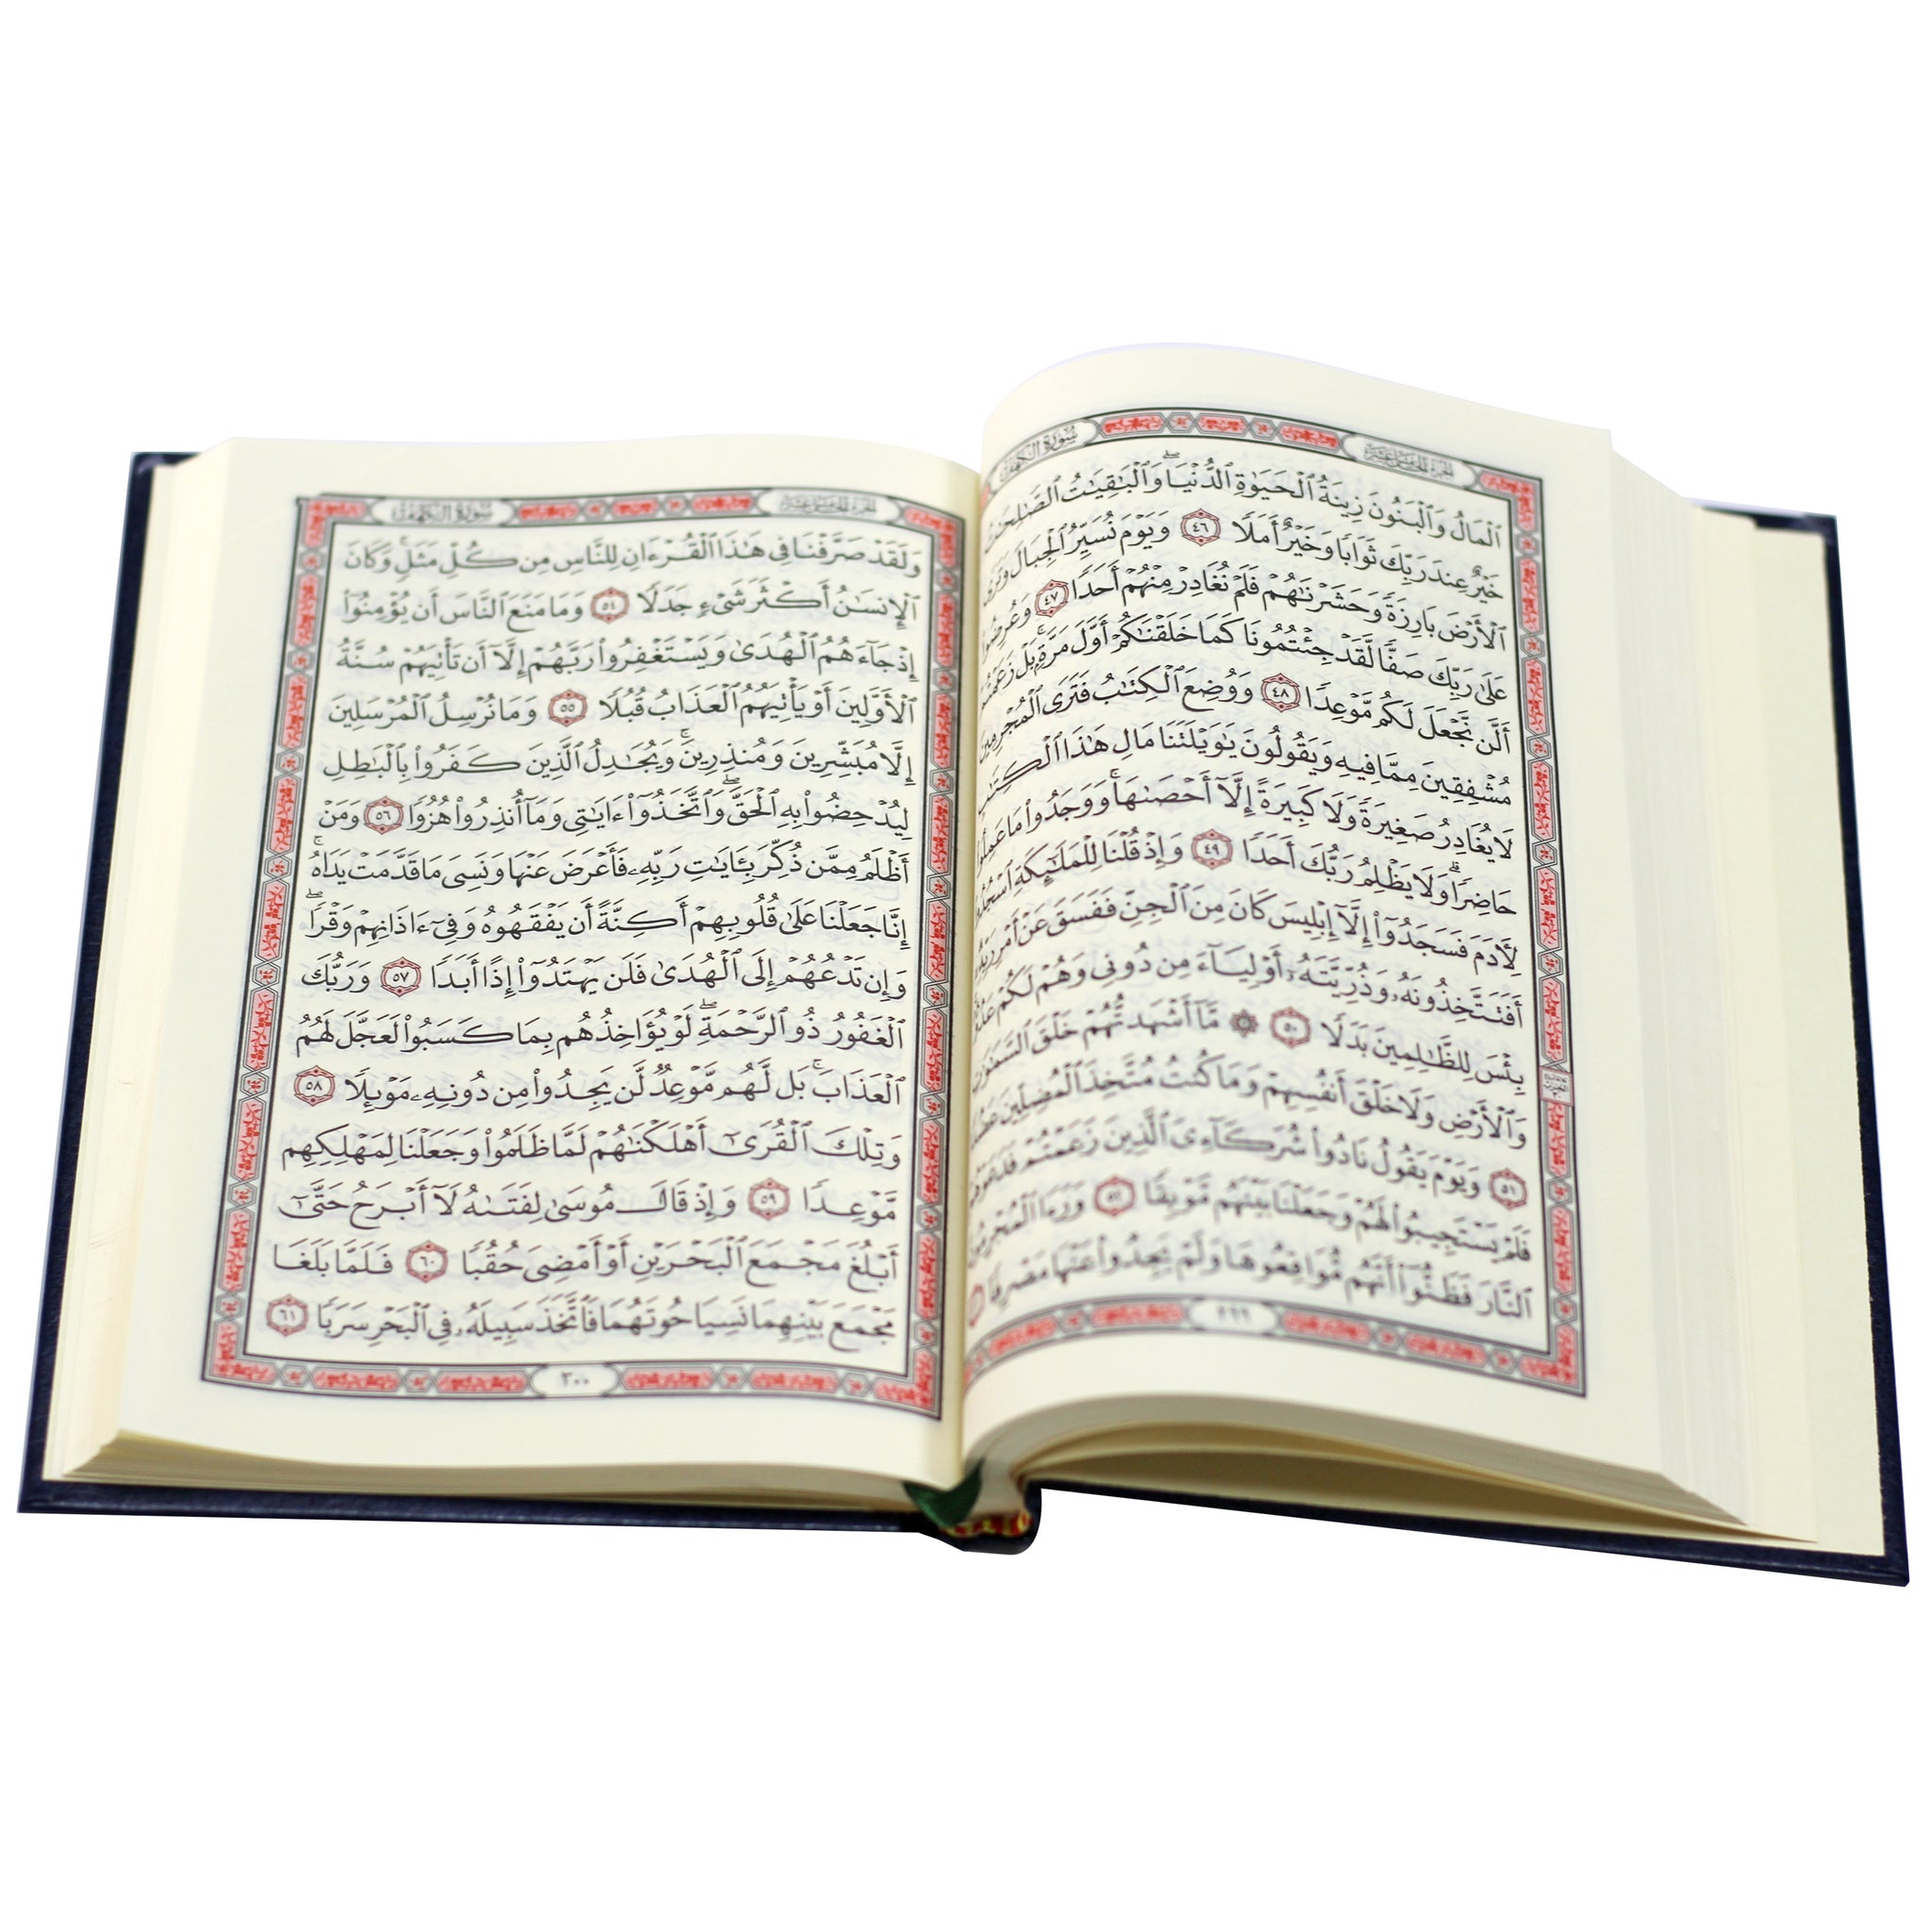 الجزء الخامس عشر
سورة الكهف
ٱلْمَالُ وَٱلْبَنُونَ زِينَةُ ٱلْحَيَوٰةِ ٱلدُّنْيَاۖ وَٱلْبَٰقِيَٰتُ ٱلصَّٰلِحَٰتُ
خَيْرٌ عِندَ رَبِّكَ ثَوَابًا وَخَيْرٌ أَمَلًا ٤٦ وَيَوْمَ نُسَيِّرُ ٱلْجِبَالَ وَتَرَى
ٱلْأَرْضَ بَارِزَةً وَحَشَرْنَٰهُمْ فَلَمْ نُغَادِرْ مِنْهُمْ أَحَدًا ٤٧ وَعُرِضُوا۟
عَلَىٰ رَبِّكَ صَفًّا لَّقَدْ جِئْتُمُونَا كَمَا خَلَقْنَٰكُمْ أَوَّلَ مَرَّةٍۭۚ بَلْ زَعَمْتُمْ
أَلَّن نَّجْعَلَ لَكُم مَّوْعِدًا ٤٨ وَوُضِعَ ٱلْكِتَٰبُ فَتَرَى ٱلْمُجْرِمِينَ
مُشْفِقِينَ مِمَّا فِيهِ وَيَقُولُونَ يَٰوَيْلَتَنَا مَالِ هَٰذَا ٱلْكِتَٰبِ
لَا يُغَادِرُ صَغِيرَةً وَلَا كَبِيرَةً إِلَّآ أَحْصَىٰهَاۚ وَوَجَدُوا۟ مَا عَمِلُوا۟
حَاضِرًاۗ وَلَا يَظْلِمُ رَبُّكَ أَحَدًا ٤٩ وَإِذْ قُلْنَا لِلْمَلَٰٓئِكَةِ ٱسْجُدُوا۟
لِأٓدَمَ فَسَجَدُوٓا۟ إِلَّآ إِبْلِيسَ كَانَ مِنَ ٱلْجِنِّ فَفَسَقَ عَنْ أَمْرِ رَبِّهِۦٓۗ
أَفَتَتَّخِذُونَهُۥ وَذُرِّيَّتَهُۥٓ أَوْلِيَآءَ مِن دُونِى وَهُمْ لَكُمْ عَدُوٌّۢۚ
بِئْسَ لِلظَّٰلِمِينَ بَدَلًا ٥٠ ۞ مَّآ أَشْهَدتُّهُمْ خَلْقَ ٱلسَّمَٰوَٰتِ
وَٱلْأَرْضِ وَلَا خَلْقَ أَنفُسِهِمْ وَمَا كُنتُ مُتَّخِذَ ٱلْمُضِلِّينَ عَضُدًا
٥١ وَيَوْمَ يَقُولُ نَادُوا۟ شُرَكَآءِىَ ٱلَّذِينَ زَعَمْتُمْ فَدَعَوْهُمْ
فَلَمْ يَسْتَجِيبُوا۟ لَهُمْ وَجَعَلْنَا بَيْنَهُم مَّوْبِقًا ٥٢ وَرَءَا ٱلْمُجْرِمُونَ
ٱلنَّارَ فَظَنُّوٓا۟ أَنَّهُم مُّوَاقِعُوهَا وَلَمْ يَجِدُوا۟ عَنْهَا مَصْرِفًا
٢٩٩
الجزء الخامس عشر
سورة الكهف
وَلَقَدْ صَرَّفْنَا فِى هَٰذَا ٱلْقُرْءَانِ لِلنَّاسِ مِن كُلِّ مَثَلٍۚ وَكَانَ
ٱلْإِنسَٰنُ أَكْثَرَ شَىْءٍ جَدَلًا ٥٤ وَمَا مَنَعَ ٱلنَّاسَ أَن يُؤْمِنُوٓا۟
إِذْ جَآءَهُمُ ٱلْهُدَىٰ وَيَسْتَغْفِرُوا۟ رَبَّهُمْ إِلَّآ أَن تَأْتِيَهُمْ سُنَّةُ
ٱلْأَوَّلِينَ أَوْ يَأْتِيَهُمُ ٱلْعَذَابُ قُبُلًا ٥٥ وَمَا نُرْسِلُ ٱلْمُرْسَلِينَ
إِلَّا مُبَشِّرِينَ وَمُنذِرِينَۚ وَيُجَٰدِلُ ٱلَّذِينَ كَفَرُوا۟ بِٱلْبَٰطِلِ
لِيُدْحِضُوا۟ بِهِ ٱلْحَقَّۖ وَٱتَّخَذُوٓا۟ ءَايَٰتِى وَمَآ أُنذِرُوا۟ هُزُوًا ٥٦ وَمَنْ
أَظْلَمُ مِمَّن ذُكِّرَ بِـَٔايَٰتِ رَبِّهِۦ فَأَعْرَضَ عَنْهَا وَنَسِىَ مَا قَدَّمَتْ يَدَاهُۚ
إِنَّا جَعَلْنَا عَلَىٰ قُلُوبِهِمْ أَكِنَّةً أَن يَفْقَهُوهُ وَفِىٓ ءَاذَانِهِمْ وَقْرًاۖ
وَإِن تَدْعُهُمْ إِلَى ٱلْهُدَىٰ فَلَن يَهْتَدُوٓا۟ إِذًا أَبَدًا ٥٧ وَرَبُّكَ
ٱلْغَفُورُ ذُو ٱلرَّحْمَةِۖ لَوْ يُؤَاخِذُهُم بِمَا كَسَبُوا۟ لَعَجَّلَ لَهُمُ
ٱلْعَذَابَۚ بَل لَّهُم مَّوْعِدٌ لَّن يَجِدُوا۟ مِن دُونِهِۦ مَوْئِلًا ٥٨
وَتِلْكَ ٱلْقُرَىٰٓ أَهْلَكْنَٰهُمْ لَمَّا ظَلَمُوا۟ وَجَعَلْنَا لِمَهْلِكِهِم
مَّوْعِدًا ٥٩ وَإِذْ قَالَ مُوسَىٰ لِفَتَىٰهُ لَآ أَبْرَحُ حَتَّىٰٓ
أَبْلُغَ مَجْمَعَ ٱلْبَحْرَيْنِ أَوْ أَمْضِىَ حُقُبًا ٦٠ فَلَمَّا بَلَغَا
مَجْمَعَ بَيْنِهِمَا نَسِيَا حُوتَهُمَا فَٱتَّخَذَ سَبِيلَهُۥ فِى ٱلْبَحْرِ سَرَبًا ٦١
٣٠٠